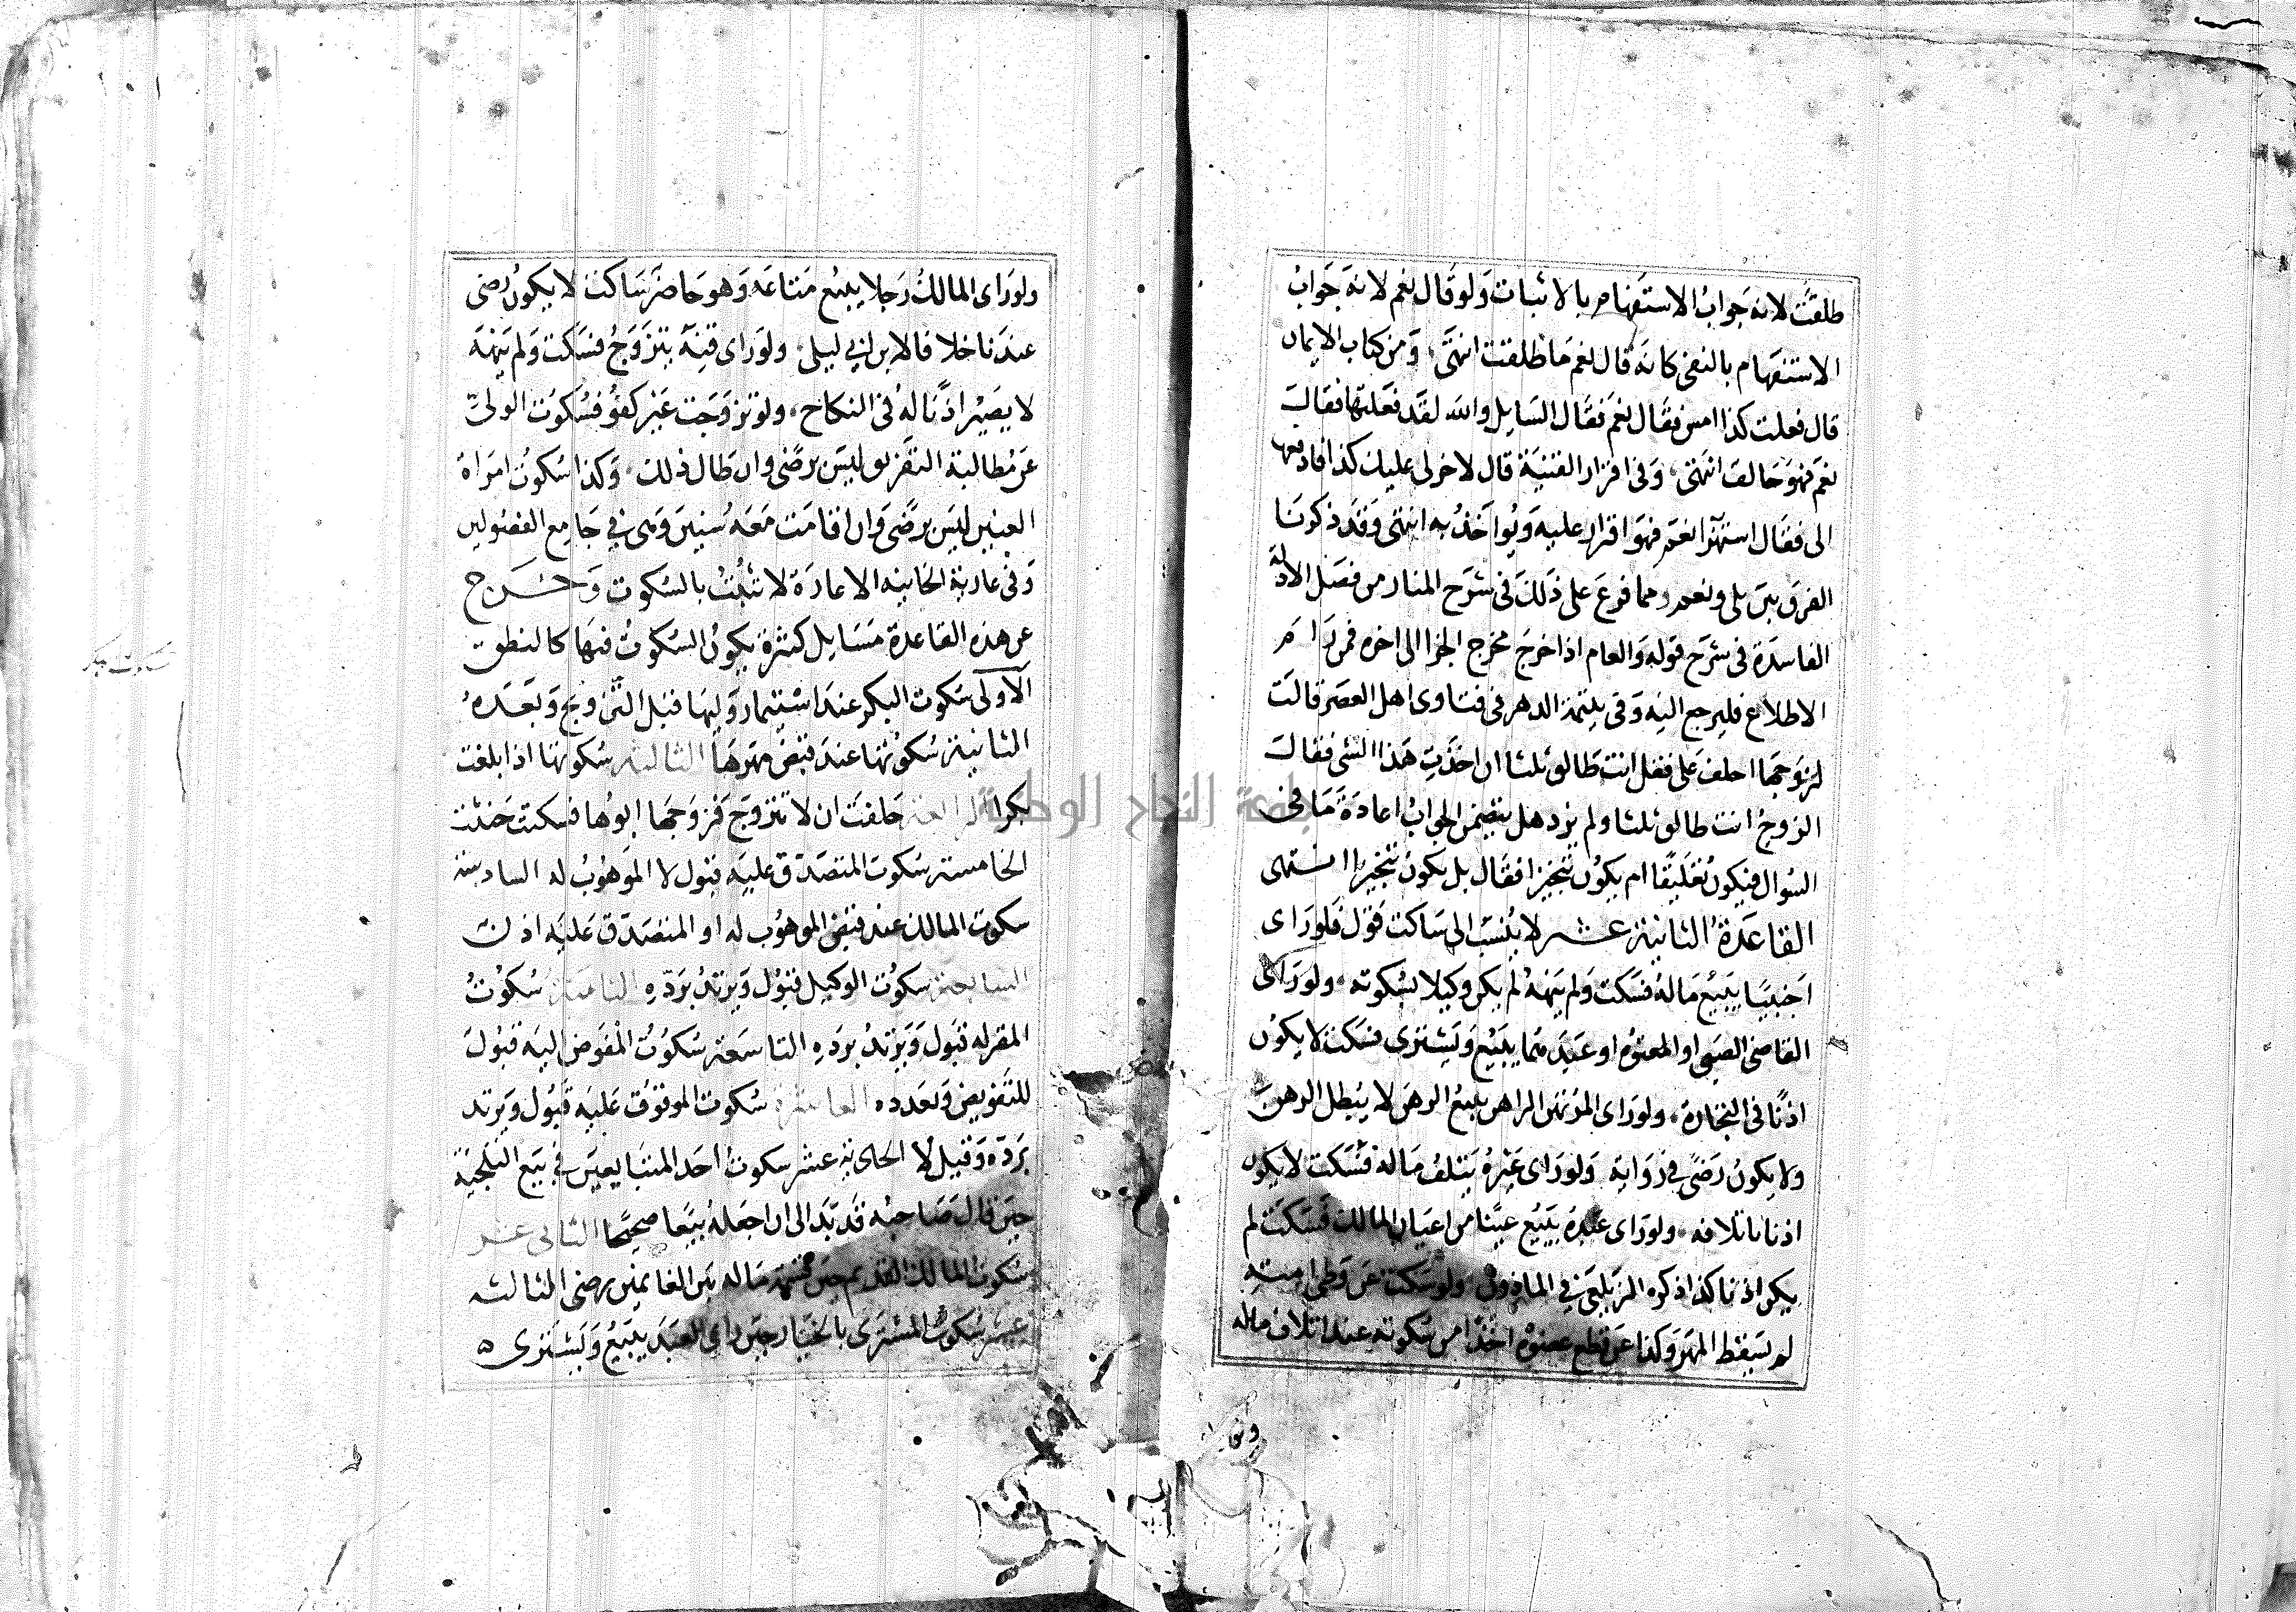 طلقت لانه جواب الاستفهام بالاثبات ولو قال نعم لانه جواب
الاستفهام بالنفي كانه قال نعم ما طلقت انتهى ومن كتاب الايمان
قال فعلت كذا امس فقال نعم فقال السايل والله لقد فعلتها فقال
نعم فهو حالف انتهى وفي اقرار القنية قال لاخر لي عليك كذا فادفعه
الي فقال استهزا نعم فهو اقرار عليه ويواخذ به انتهى وقد ذكرنا
الفرق بين بلى ونعم وما فرع على ذلك في شرح المنار من فصل الادلة
الفاسدة في شرح قوله والعام اذا خرج مخرج الجزا الى اخره فمن رام
الاطلاع فليرجع اليه وفي يتيمة الدهر في فتاوى اهل العصر قالت
لزوجها احلف على فقل انت طالق ثلثا ان اخذت هذا الشي فقال
الزوج انت طالق ثلثا ولم يزد هل يتضمن الجواب اعادة ما في
السوال فيكون تعليقا ام يكون تنجيزا فقال بل يكون تنجيزا انتهى
القاعدة الثانية عشر لا ينسب الى ساكت قول فلو راى
اجنبيا يبيع ماله فسكت ولم ينهه لم يكن وكيلا بسكوته ولو راى
القاضي الصبي او المعتوه او عبدهما يبيع ويشترى فسكت لا يكون
اذنا في التجارة ولو راى المرتهن الراهن يبيع الرهن لا يبطل الرهن
ولا يكون رضى في رواية ولو راى غيره يتلف ماله فسكت لا يكون
اذنا باتلافه ولو راى عبده يبيع عينا من اعيان المالك فسكت لم
يكن اذنا كذا ذكره الزيلعي في الماذون ولو سكت عن وطى امته
لم يسقط المهر وكذا عن قطع عضوه اخذا من سكوته عند اتلاف ماله
ولو راى المالك رجلا يبيع متاعه وهو حاضر ساكت لا يكون رضى
عندنا خلافا لابن ابي ليلى ولو راى قنه يتزوج فسكت ولم ينهه
لا يصير اذنا له في النكاح ولو تزوجت غير كفؤ فسكوت الولي
عن مطالبة التفريق ليس برضى وان طال ذلك وكذا سكوت امراة
العنين ليس برضى وان اقامت معه سنين وهى في جامع الفصولين
وفي عارية الخانيه الاعارة لا تثبت بالسكوت وخرج
عن هذه القاعدة مسايل كثيرة يكون السكوت فيها كالنطق
الاولى سكوت البكر عند استيمار وليها قبل التزويج وبعده
الثانية سكوتها عند قبض مهرها الثالثة سكوتها اذا بلغت
بكرا الرابعة حلفت ان لا تتزوج فزوجها ابوها فسكتت حنثت
الخامسة سكوت المتصدق عليه قبول لا الموهوب له السادسة
سكوت المالك عند قبض الموهوب له او المتصدق عليه اذن
السابعة سكوت الوكيل قبول ويرتد برده الثامنة سكوت
المقر له قبول ويرتد برده التاسعة سكوت المفوض اليه قبول
للتفويض وبعدده العاشرة سكوت الموقوف عليه قبول ويرتد
برده وقيل لا الحادية عشر سكوت احد المتبايعين في بيع التلجية
حين قال صاحبه قد بدا لى ان اجعله بيعا صحيحا الثانى عشر
سكوت المالك القديم حين قسمة ماله بين الغانمين رضى الثالثة
عشر سكوت المشترى بالخيار حين راى العبد يبيع ويشترى